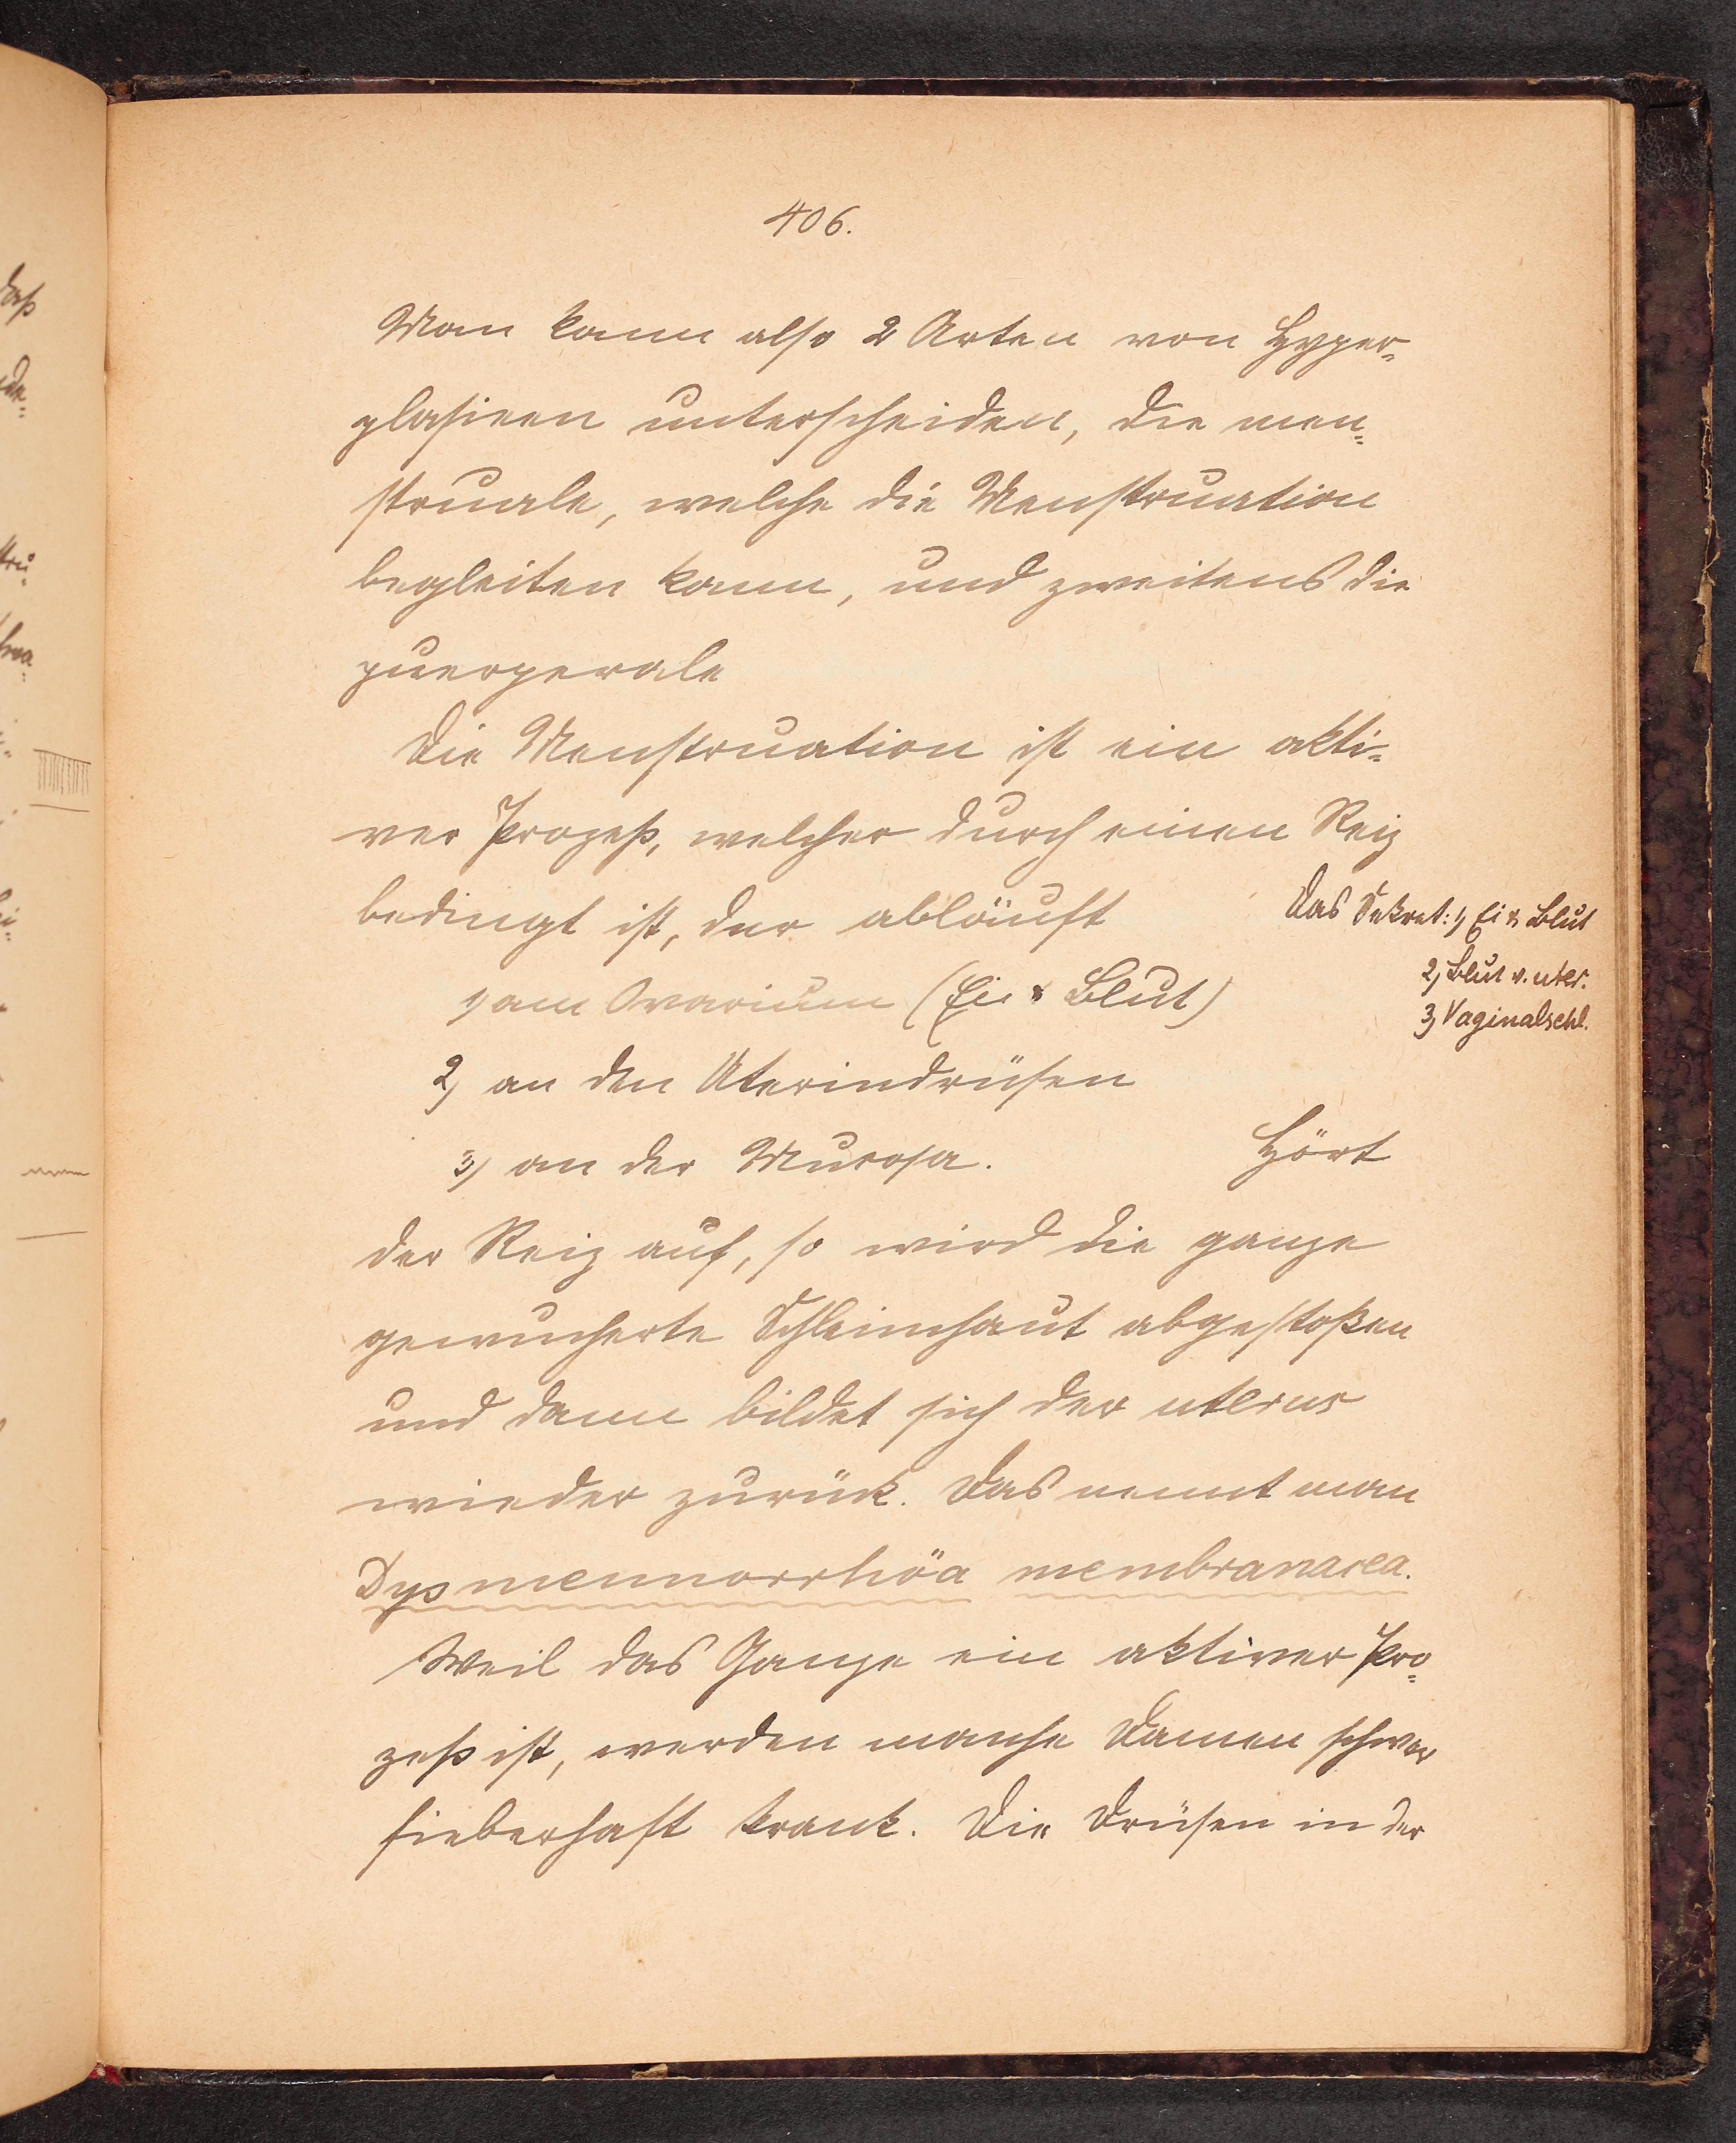 406.
Man kann also 2 Arten von Hyper-
plasieen unterscheiden, die men-
struale, welche die Menstruation
begleiten kann, und zweitens die
puerperale
Die Menstruation ist ein akti-
ver Prozeß, welcher durch einen Reiz
bedingt ist, der abläuft
1) am Ovarium (Ei & Blut)
2) an den Uterindrüsen
3) an der Mucosa. Hört
der Reiz auf, so wird die ganze
gewucherte Schleimhaut abgestoßen
und dann bildet sich der uterus
wieder zurück. Das nennt man
Dysmennorrhöa membranacea.
Weil das Ganze ein aktiver Pro-
zeß ist, werden manche Damen schwer
fieberhaft krank. Die Drüsen in der
Das Sekret: 1) Ei & Blut
2) Blut v. uter.
3) Vaginalschl.